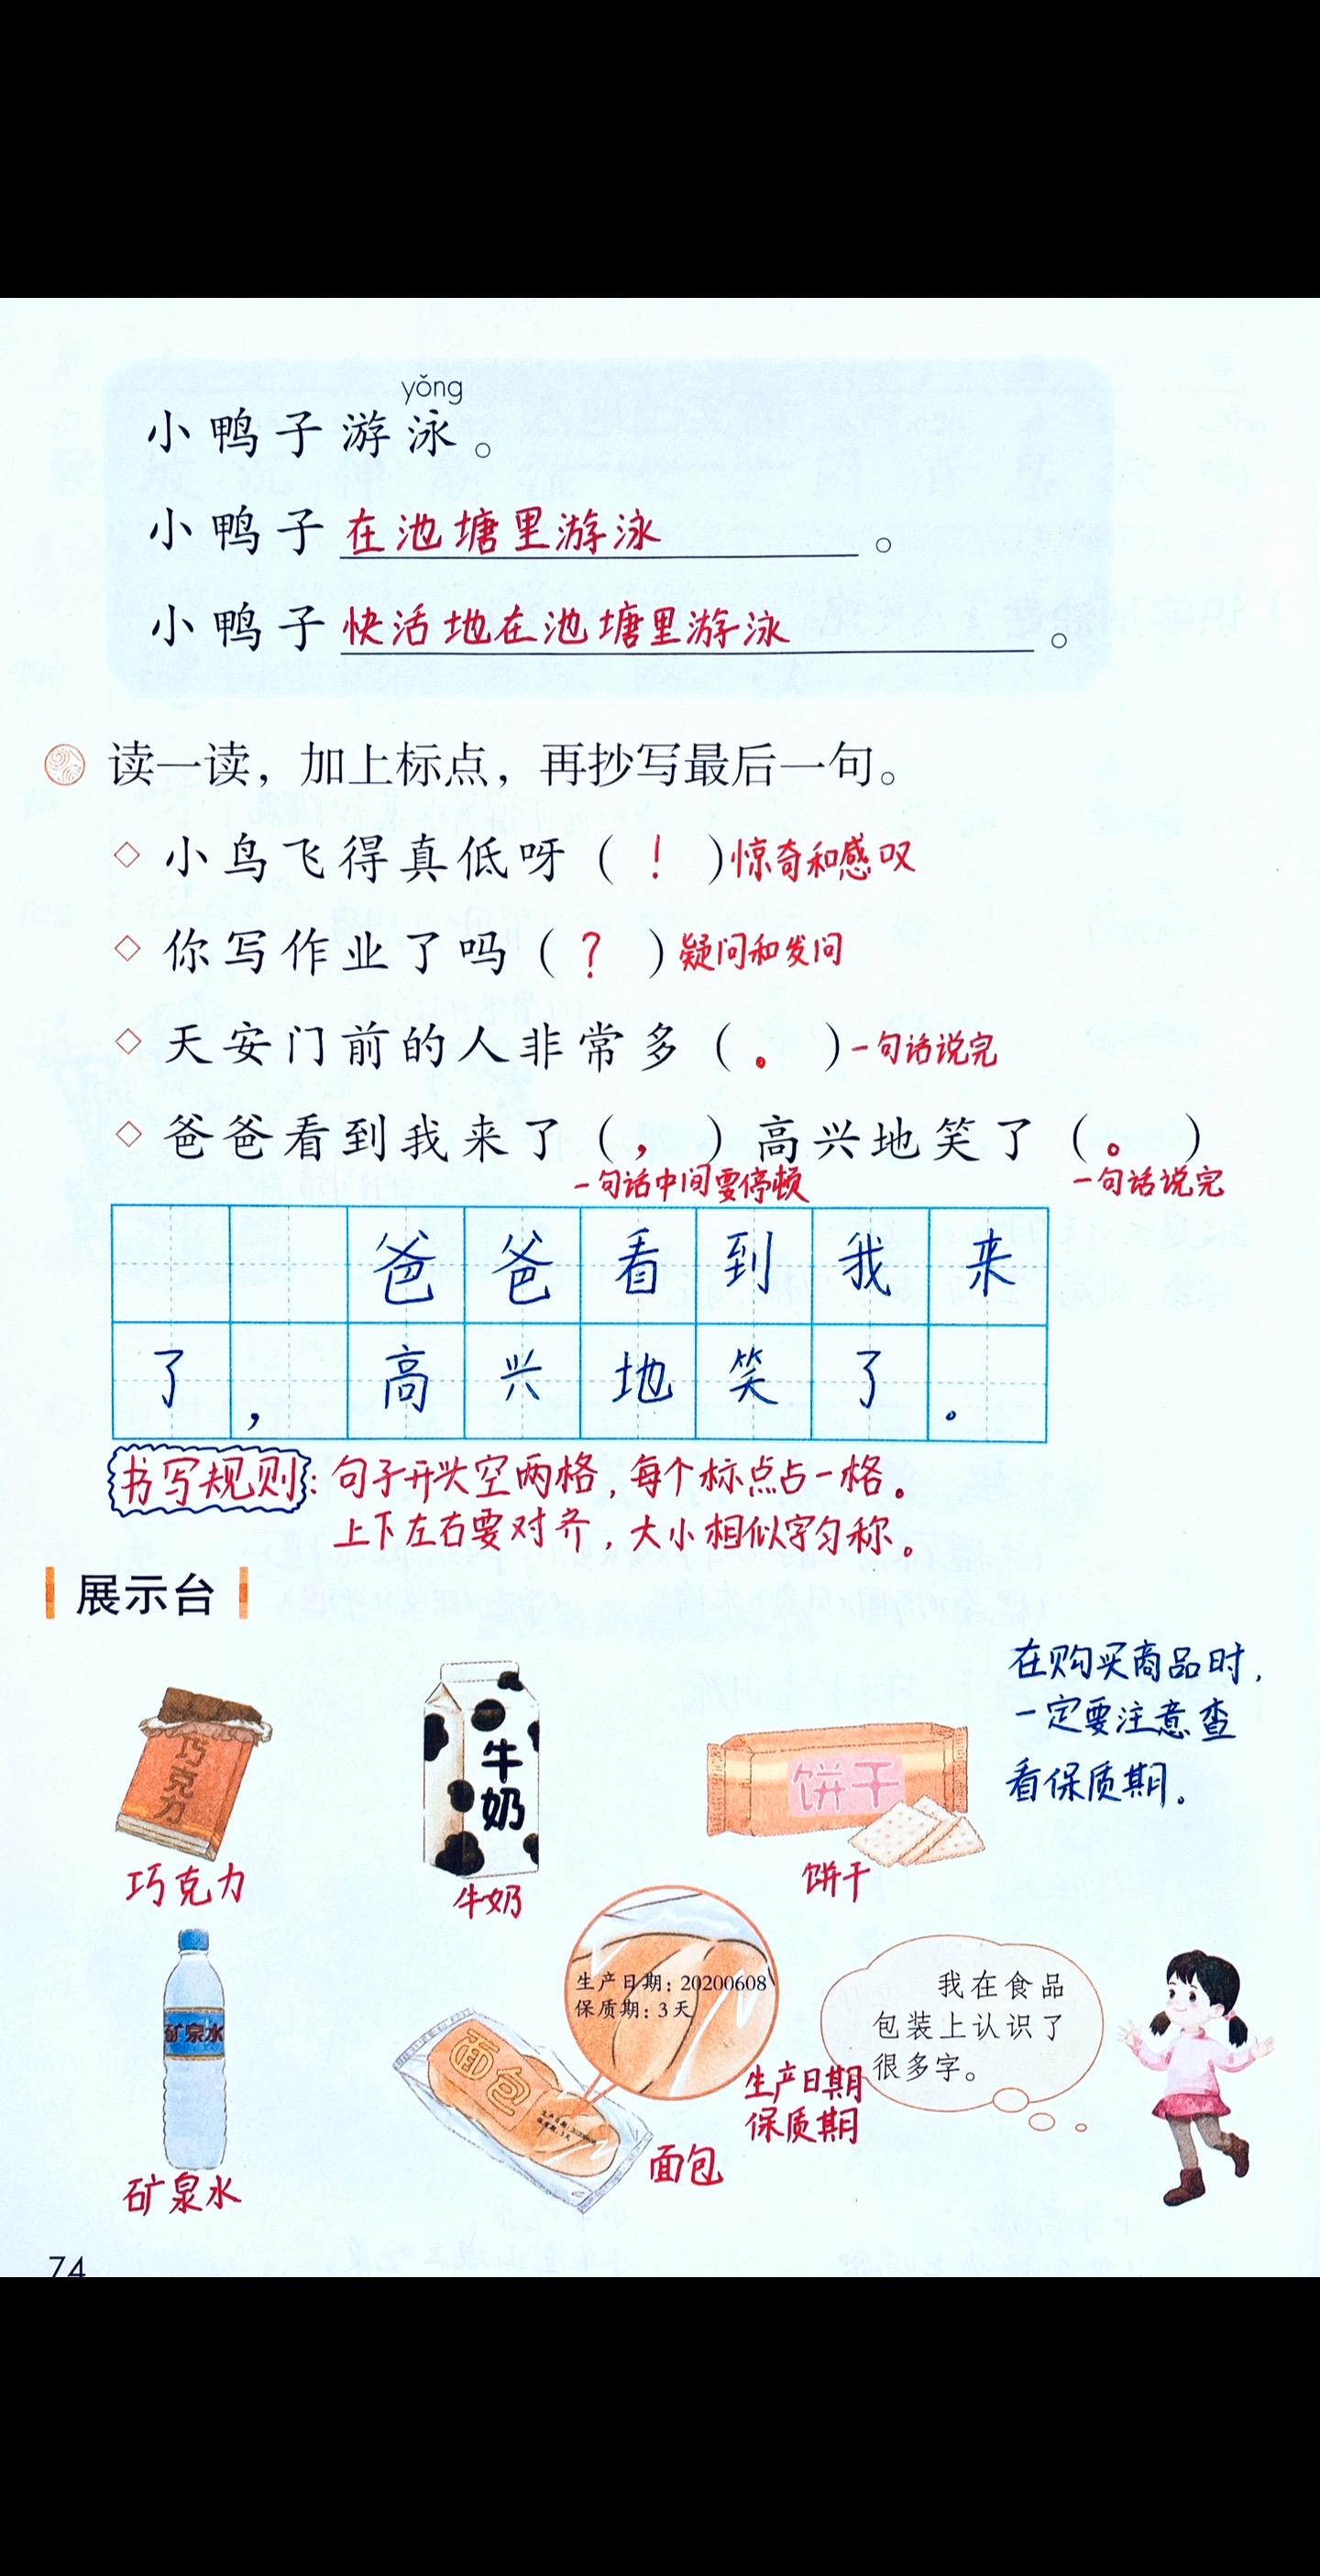 yǒng
小鸭子游泳。
小鸭子在池塘里游泳。
小鸭子快活地在池塘里游泳。
读一读，加上标点，再抄写最后一句。
◇ 小鸟飞得真低呀（！）惊奇和感叹
◇ 你写作业了吗（？）疑问和发问
◇ 天安门前的人非常多（。）一句话说完
◇ 爸爸看到我来了（，）高兴地笑了（。）
一句话中间要停顿 一句话说完
爸爸看到我来
了，高兴地笑了。
书写规则：句子开头空两格，每个标点占一格。
上下左右要对齐，大小相似字匀称。
展示台
在购买商品时，
一定要注意查
看保质期。
巧克力
牛奶
饼干
巧克力
牛奶
饼干
矿泉水
矿泉水
生产日期：20200608
保质期：3天
面包
生产日期：20200608
保质期：3天
生产日期
保质期
面包
我在食品
包装上认识了
很多字。
74